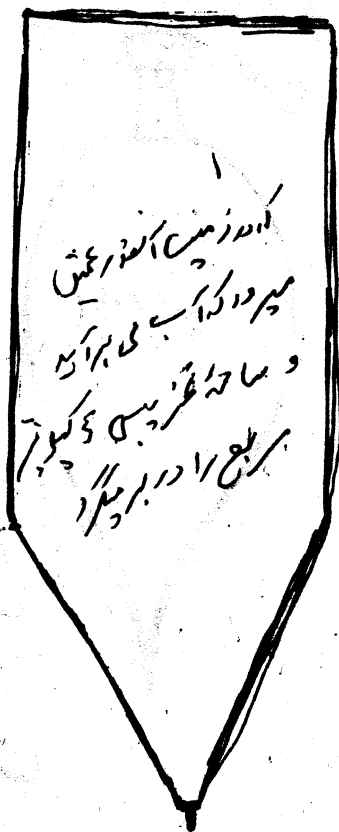 ۱
که در زمین آنقدر عمیق
میرود که آب می برآید
و ساحهٔ تقریبی ۴ کیلومتر
مربع را در بر میگیرد